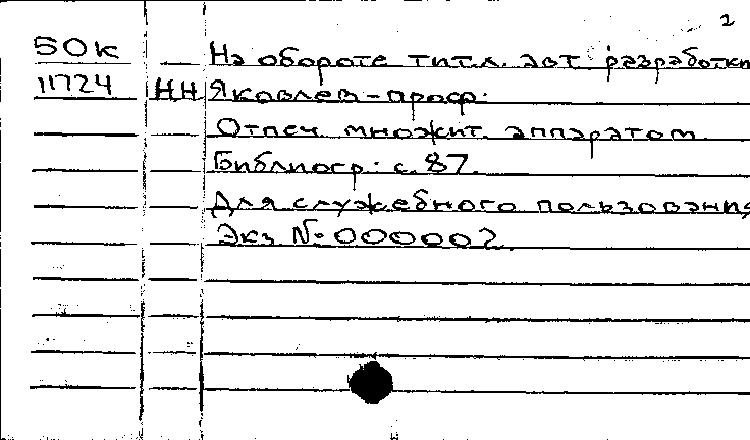 2
50к На обороте титл. авт. разработки
11724 НН Яковлев - проф.
Отпеч. множит. аппаратом.
Библиогр.: с. 87.
Для служебного пользования
Экз. № 000002.